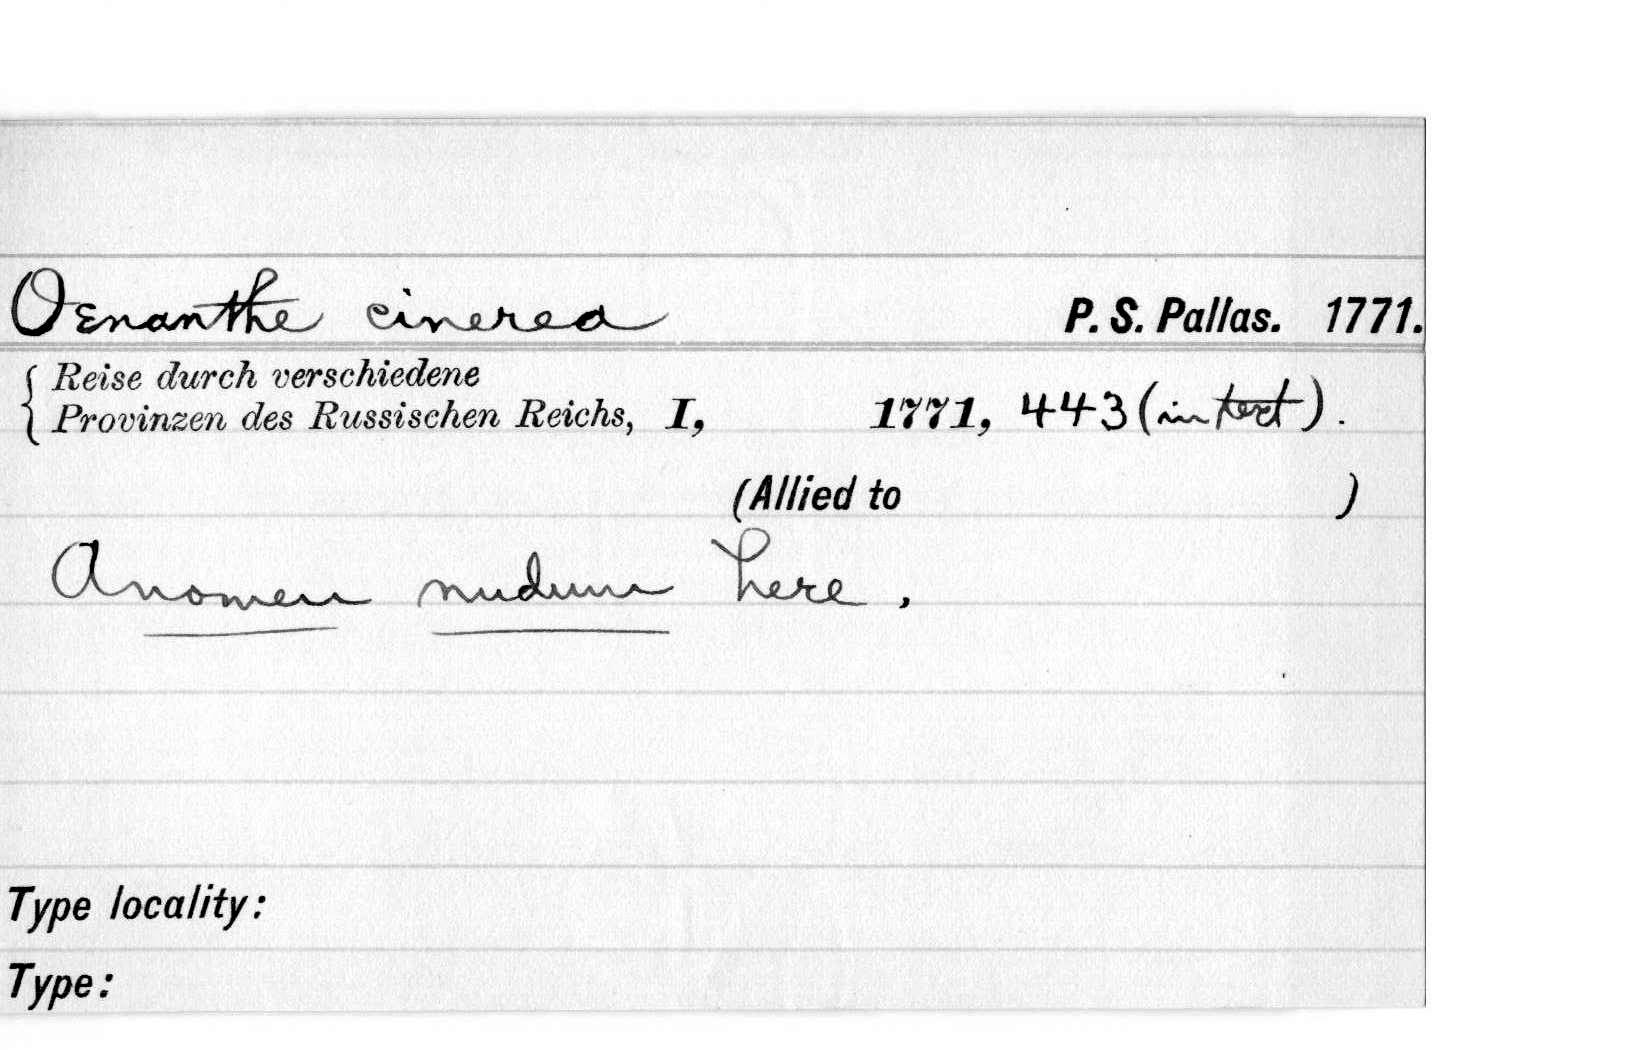 Oenanthe cinerea P. S. Pallas. 1771.
Reise durch verschiedene
Provinzen des Russischen Reichs, I, 1771, 443 (in text).
(Allied to )
A nomen nudum here.
Type locality:
Type: